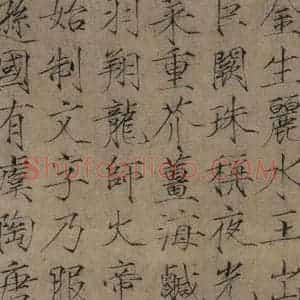 金生麗水玉出
巨闕珠稱夜光
菜重芥薑海鹹
羽翔龍師火帝
始制文字乃服
遜國有虞陶唐